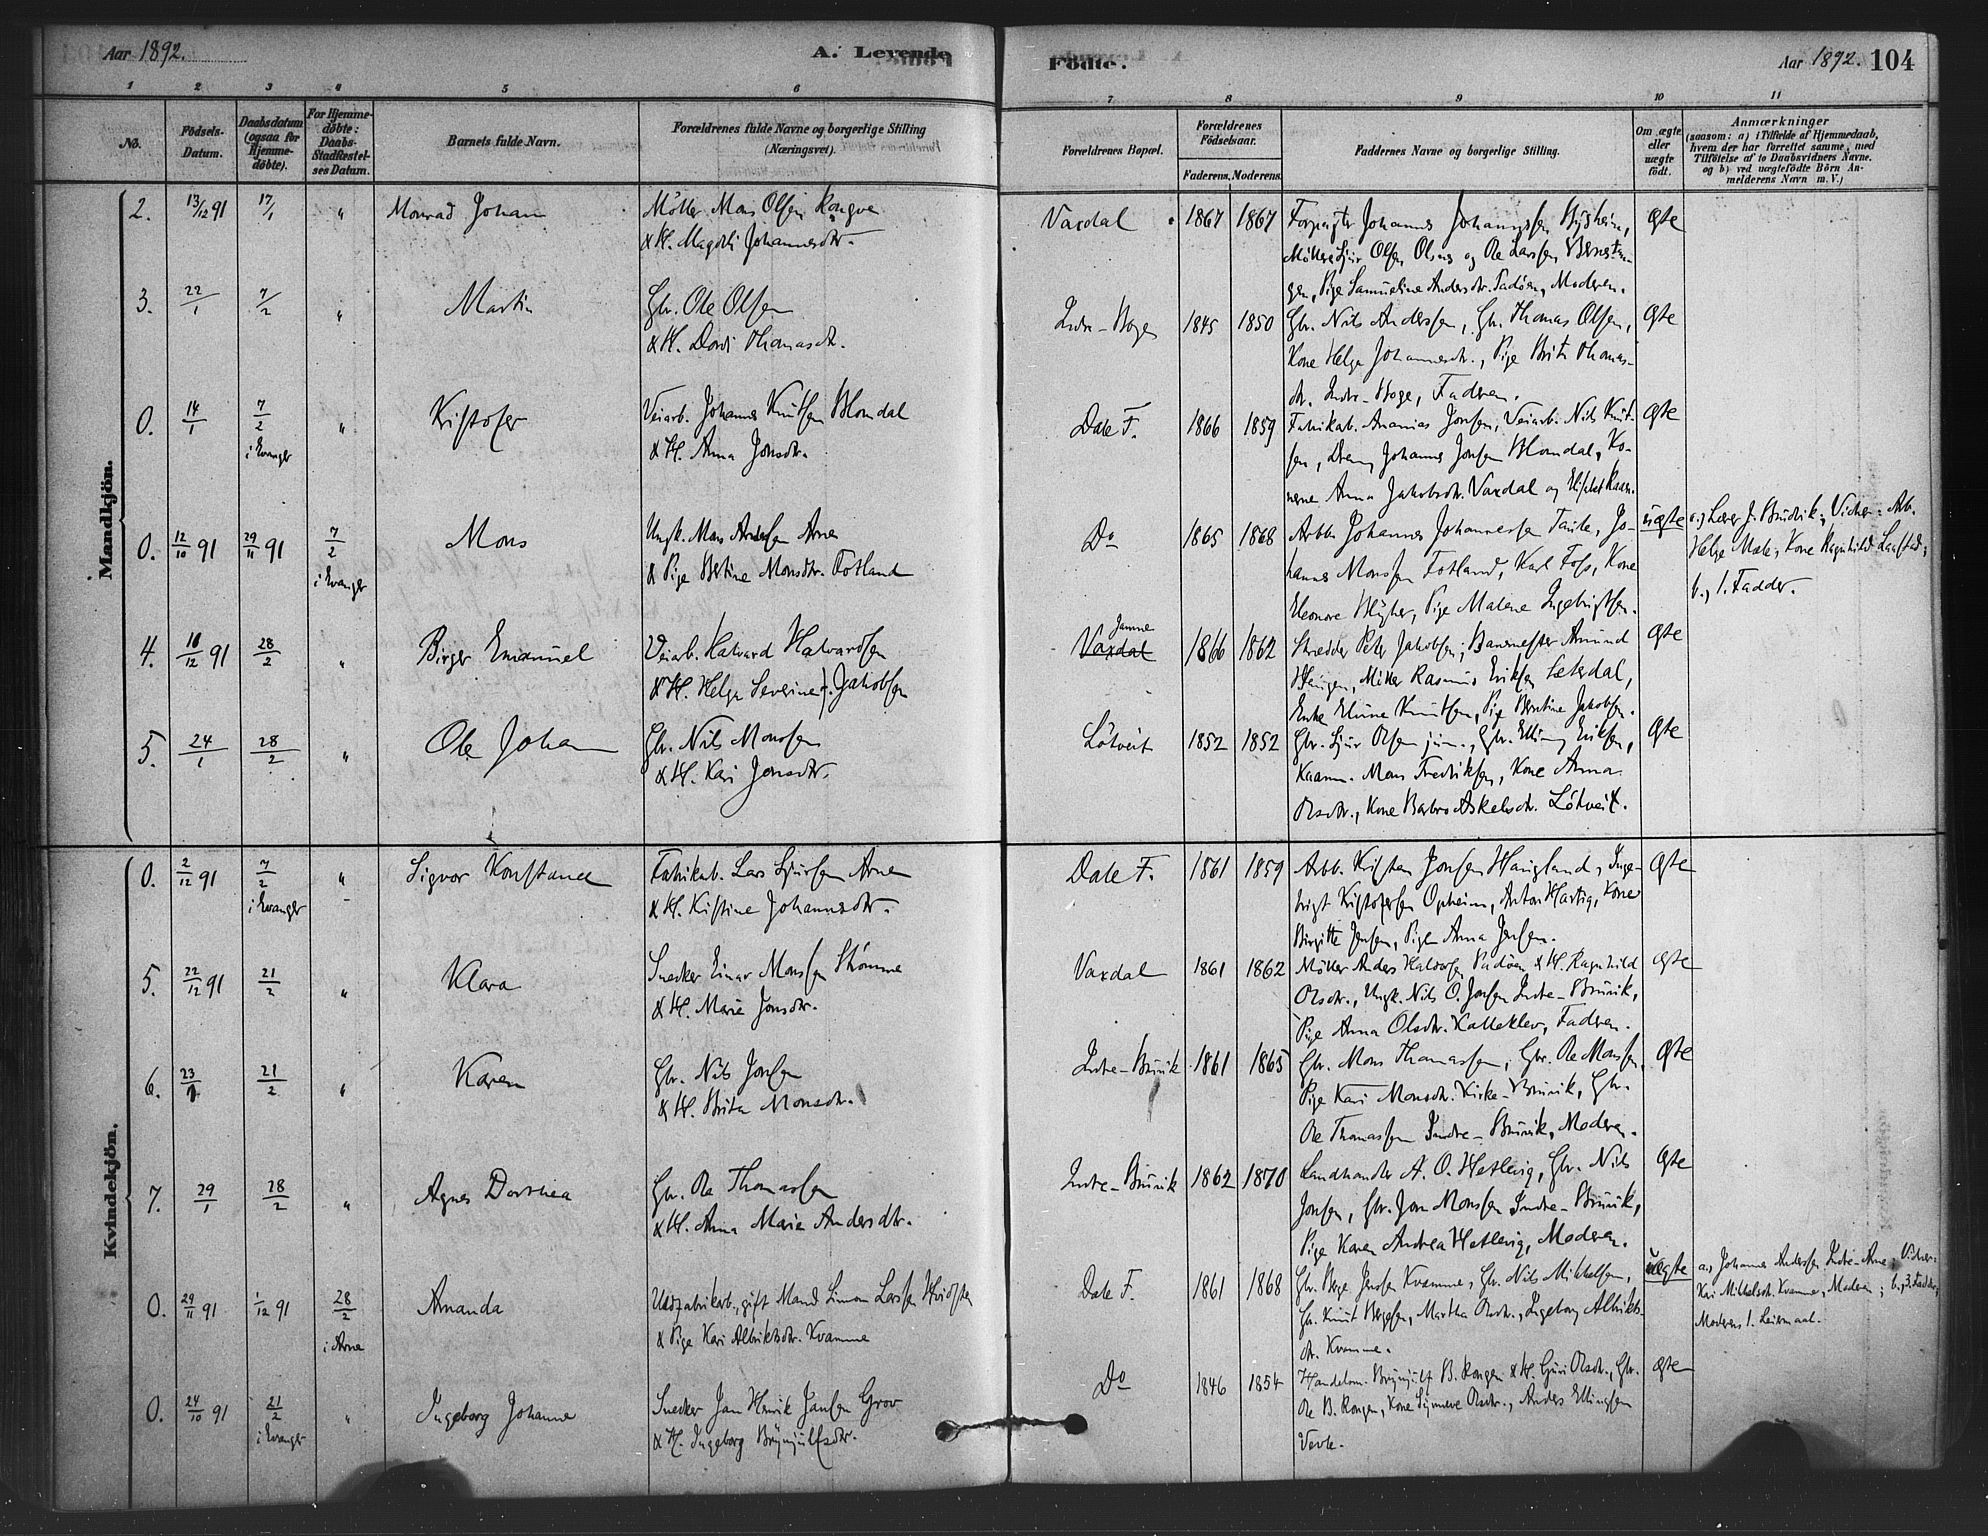 Aar 1892.
A. Levende
Födte.
Aar 1892. 104
1 2 3 4 5 6 7 8 9 10 11
No.
Födsels-
Datum.
Daabsdatum
(ogsaa for
Hjemme-
döbte).
For Hjemme-
döbte:
Daabs-
Stadfestel-
ses Datum.
Barnets fulde Navn.
Forældrenes fulde Navne og borgerlige Stilling
(Næringsvei).
Forældrenes Bopæl.
Forældrenes
Födselsaar.
Faderens. Moderens.
Faddernes Navne og borgerlige Stilling.
Om ægte
eller
uægte
født.
Anmærkninger
(saasom: a) i Tilfælde af Hjemmedaab,
hvem der har forrettet samme, med
Tilföielse af to Daabsvidners Navne.
og b) ved uægtefödte Börn An-
melderens Navn m. V.)
Mandkjön.
2. 13/12 91 17/1 " Monrad Johan
Möller Mons Olsen Rongve
& H. Magdli Johannesdtr.
Vaxdal 1867 1867
Forpagter Johannes Johannessen
Möllere Sjur Olsen Olsnes og Ole Larssen Bernestan-
gen, Pige Samueline Andersdtr. Tadöen, Moderen.
ægte
3. 22/1 7/2 " Martin
Gbr. Ole Olsen
& H. Dordi Thomasdtr.
Indre-Boge 1845 1850
Gbr. Nils Anderssen, Gbr. Thomas Olsen,
Kone Helga Johannesdtr., Pige Brita Thomas-
dtr. Indre-Boge, Faderen.
ægte
0. 14/1 7/2 i Evanger " Kristofer
Veiarb. Johannes Knutsen Blomdal
& H. Anna Jonsdtr.
Dale F. 1866 1859
Fabrikarb. Ananias Jonsen, Veiarb. Nils Knut-
sen, Dreng Johannes Jonsen Blomdal, Ko-
nerne Anna Jakobsdtr. Vaxdal og Elisabet
ægte
0. 12/10 91 29/11 91 7/2 i Evanger Mons
Ungk. Mons Andersen Arne
& Pige Bertine Monsdtr. Fotland
Do 1865 1868
Arbb. Johannes Johannessen Taule, Jo-
hannes Monssen Fotland, Karl Foss, Kone
Eleonore Blÿher, Pige Malene Ingebrigtsen.
uægte
a.) Lærer J. Bruvik; Vidner: Arb.
Helge Male, Kone Ragnhild
b.) 1. Fadder.
4. 18/12 91 28/2 " Birger Emanuel
Veiarb. Halvard Halvardsen
& H. Helga Severine f. Jakobsen
Jamne
Vaxdal 1866 1862
Skrædder Peter Jakobsen, Banemester Amund
Haugen, Möller Rasmus Eriksen Sætersdal,
Enke Eline Knutsen, Pige Berntine Jakobsen.
ægte
5. 24/1 28/2 " Ole Johan
Gbr. Nils Monsen
& H. Kari Jonsdtr.
Lötveit 1852 1852
Gbr. Sjur Olsen jun., Gbr. Elling Eriksen,
Kaarm. Mons Fredriksen, Kone Anna
Olsdtr., Kone Barbro Askelsdtr. Lötveit.
ægte
Kvindekjön.
0. 2/12 91 7/2 i Evanger " Sigvor Konstance
Fabrikarb. Lars Sjursen Arne
& H. Kristine Johannesdtr.
Dale F. 1861 1859
Arbb. Kristen Jonsen Haugland, Inge-
brigt Kristofersen Opheim, Anton Hartig, Kone
Birgitte Jensen, Pigen Anna Jensen.
ægte
5. 22/12 91 21/2 " Klara
Snedker Einar Monssen Strömme
& H. Marie Jonsdtr.
Vaxdal 1861 1862
Möller Anders Halvorsen Tadöen & H. Ragnhild
Olsdtr., Ungk. Nils O. Jonsen Indre-Bruvik,
Pige Anna Olsdtr. Kalleklev, Faderen.
ægte
6. 23/1 21/2 " Karen
Gbr. Nils Jonsen
& H. Brita Monsdtr.
Indre-Bruvik 1861 1865
Gbr. Mons Thomassen, Gbr. Ole Monsen,
Pige Kari Monsdtr. Kirke-Bruvik, Gbr.
Ole Thomassen Indre-Bruvik, Moderen.
ægte
7. 29/1 28/2 " Agnes Dorthea
Gbr. Ole Thomassen
& H. Anna Marie Andersdtr.
Indre-Bruvik 1862 1870
Landhandler A. O. Hetlevig, Gbr. Nils
Jonsen, Gbr. Jon Monsen Indre-Bruvik,
Pige Karen Andrea Hetlevig, Moderen.
ægte
0. 29/11 91 1/12 91 28/2 i Arne Amanda
Uldfabrikarb., gift Mand Simon Larssen
& Pige Kari Albriktsdtr. Kvamme
Dale F. 1861 1868
Gbr. Berge Jensen Kvamme, Gbr. Nils Mikkelsen,
Gbr. Knut Bergesen, Martha Olsdtr., Ingeborg Albrikts-
dtr. Kvamme.
uægte
a.) Johannes Anderssen Indre-Arne; Vidner:
Kari Mikkelsdtr. Kvamme, Moderen; b.) 3. Fadder;
Moderens 1. Leiermaal.
0. 24/10 91 21/2 i Evanger " Ingeborg Johanne
Snedker Jan Henrik Jansen Grov
& H. Ingeborg Brynjulfsdtr.
Do 1846 1854
Handelsm. Brynjulf B. Rongen & H. Guri Olsdtr., Gbr.
Ole B. Rongen, Kone Synneve Olsdtr., Anders Ellingsen
Vevle.
ægte